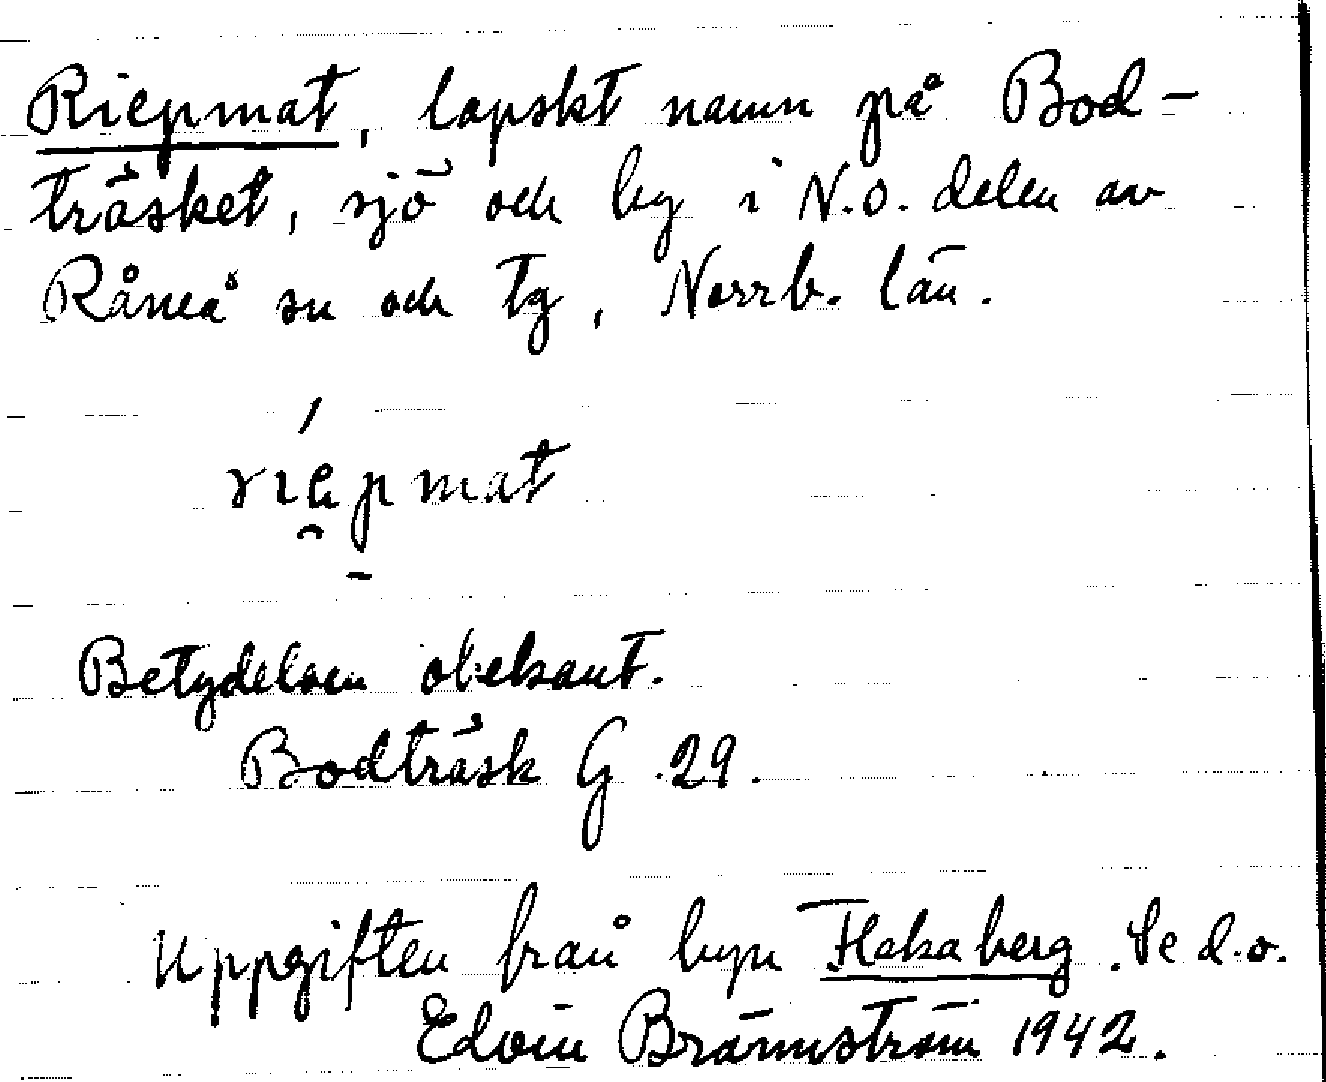 Riepmat, lapskt namn på Bod-
träsket, sjö och by i N.O. delen av
Råneå sn och tg, Norrb. län.
riepmat
Betydelsen obekant.
Bodträsk G 29.
Uppgiften från byn Flakaberg. Se d.o.
Edvin Brännström 1942.